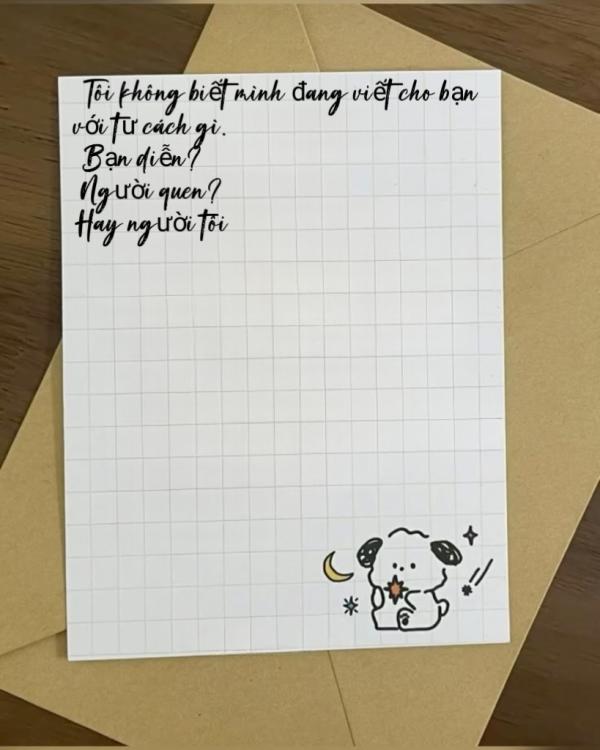 Tôi không biết mình đang viết cho bạn
với tư cách gì.
Bạn diễn?
Người quen?
Hay người tôi